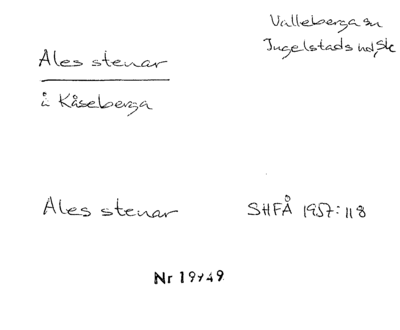 Valleberga sn
Ingelstads hd, Sk
Ales stenar
å Kåseberga
Ales stenar
SHFÅ 1957:118
Nr